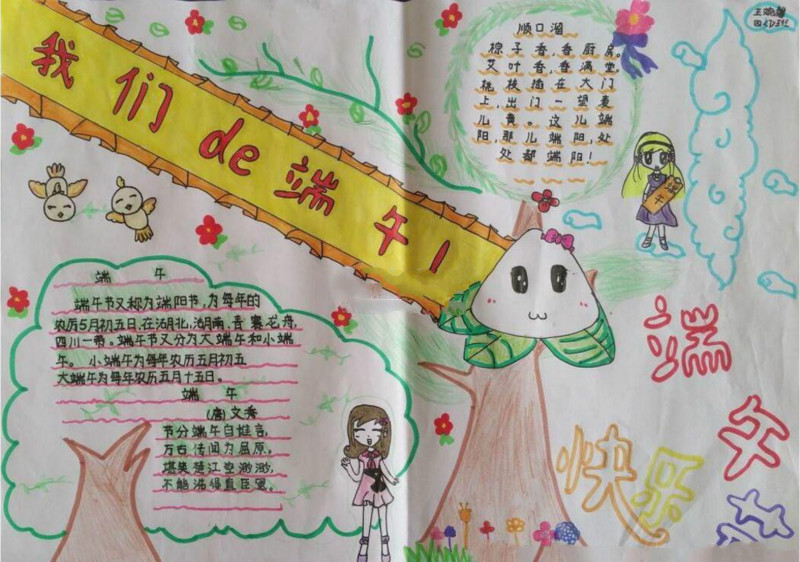 我们de端午!
顺口溜
粽子香,香厨房。
艾叶香,香满堂
桃枝插在大门
上,出门一望麦
儿黄。这儿端
阳,那儿端阳,处
处都端阳!
端午
端午
端午节又称为端阳节,为每年的
农历5月初五日,在湖北,湖南,青 赛龙舟,
四川一带。端午节又分为大端午和小端
午。 小端午为每年农历五月初五
大端午为每年农历五月十五日。
端午
(唐)文秀
节分端午自谁言,
万古传闻为屈原。
堪笑楚江空渺渺,
不能洗得直臣冤。
端午节
快乐